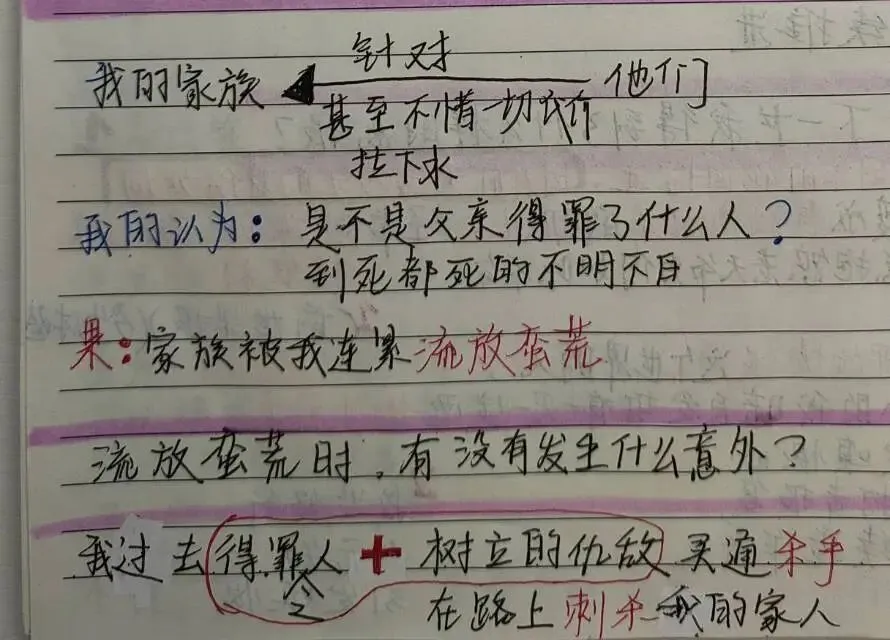 针对
我的家族 他们
甚至不惜一切代价
拉下水
我的认为：是不是父亲得罪了什么人？
到死都死的不明不白
果：家族被我连累流放蛮荒
流放蛮荒时，有没有发生什么意外？
我过去得罪人+树立的仇敌买通杀手
在路上刺杀我的家人